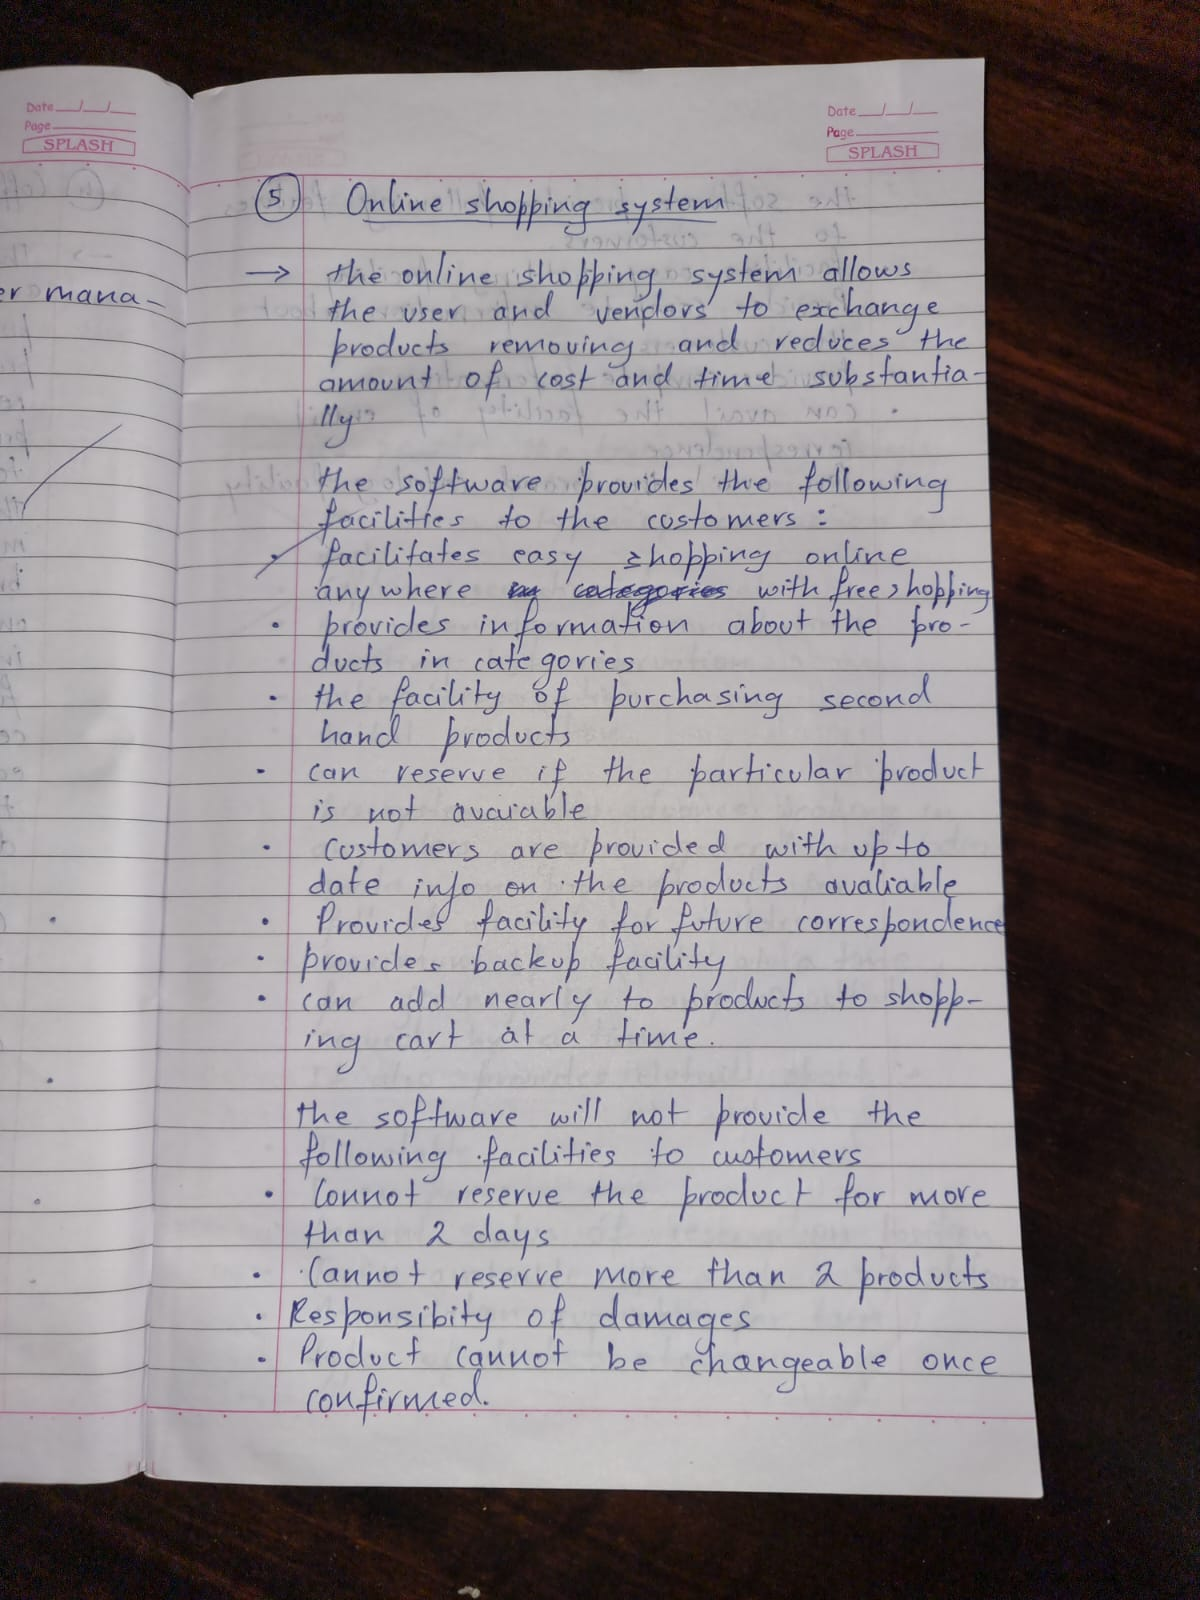 Date
Page
SPLASH
er mana-
Date
Page
SPLASH
5 Online shopping system
→ the online shopping system allows
the user and vendors to exchange
products removing and reduces the
amount of cost and time substantia-
lly
the software provides the following
facilities to the customers :
• facilitates easy shopping online
anywhere with free shopping
• provides information about the pro-
ducts in categories
• the facility of purchasing second
hand products
- can reserve if the particular product
is not avaiable
• customers are provided with up to
date info on the products avaliable
• Provides facility for future correspondence
• provides backup facility
• can add nearly to products to shopp-
ing cart at a time.
the software will not provide the
following facilities to customers
• Connot reserve the product for more
than 2 days
• Cannot reserve more than 2 products
• Responsibity of damages
• Product cannot be changeable once
confirmed.